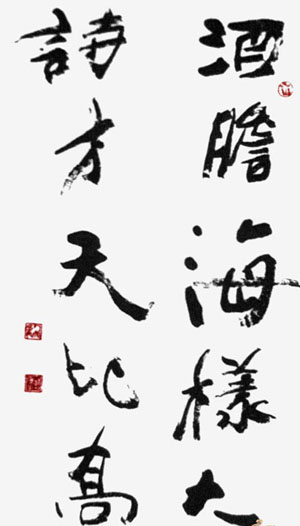 酒膽海樣大
詩才天比高